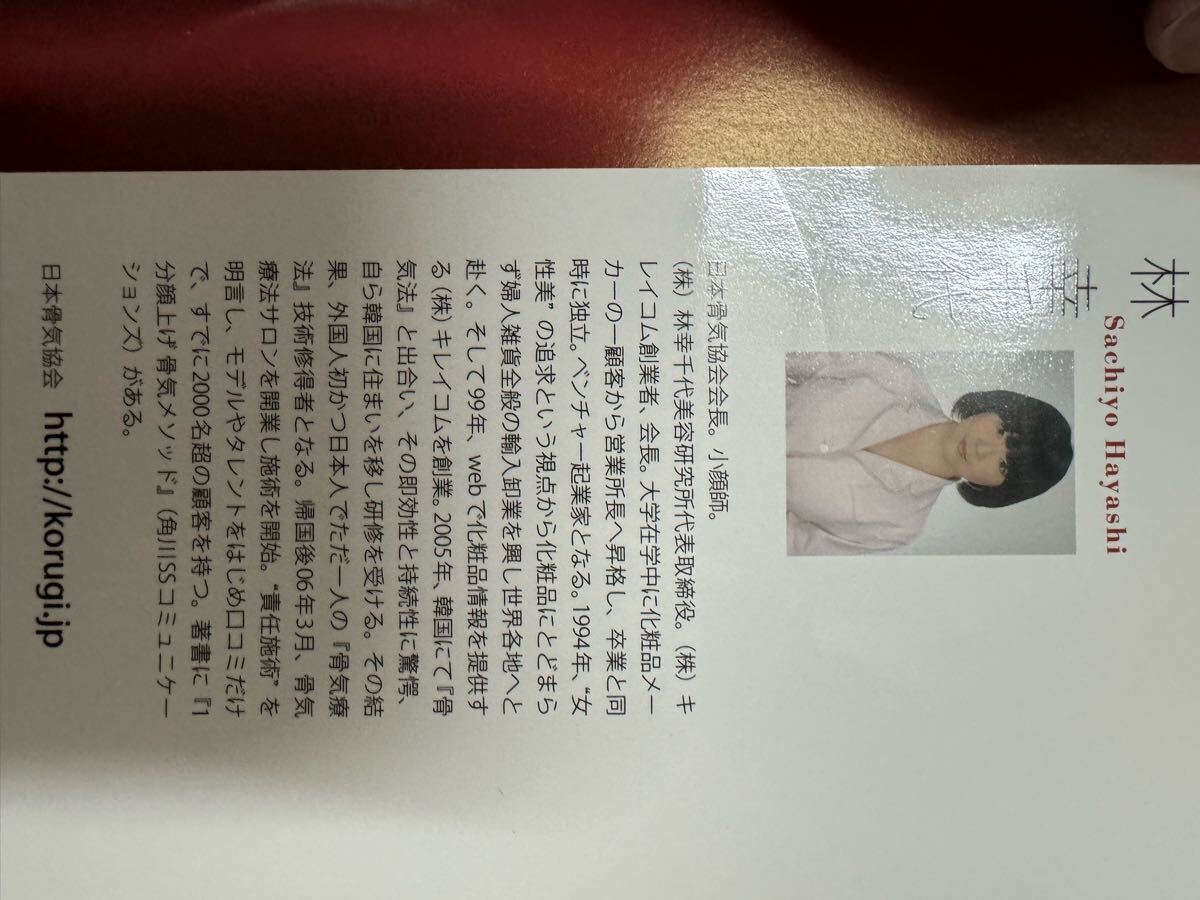 林 幸千代
Sachiyo Hayashi
日本骨気協会会長。小顔師。
(株)林幸千代美容研究所代表取締役。(株)キ
レイコム創業者、会長。大学在学中に化粧品メー
カーの一顧客から営業所長へ昇格し、卒業と同
時に独立。ベンチャー起業家となる。1994年、“女
性美”の追求という視点から化粧品にとどまら
ず婦人雑貨全般の輸入卸業を興し世界各地へと
赴く。そして99年、webで化粧品情報を提供す
る(株)キレイコムを創業。2005年、韓国にて『骨
気法』と出合い、その即効性と持続性に驚愕、
自ら韓国に住まいを移し研修を受ける。その結
果、外国人初かつ日本人でただ一人の『骨気療
法』技術修得者となる。帰国後06年3月、骨気
療法サロンを開業し施術を開始。“責任施術”を
明言し、モデルやタレントをはじめ口コミだけ
で、すでに2000名超の顧客を持つ。著書に『1
分顔上げ骨気メソッド』(角川SSコミュニケー
ションズ)がある。
日本骨気協会 http://korugi.jp